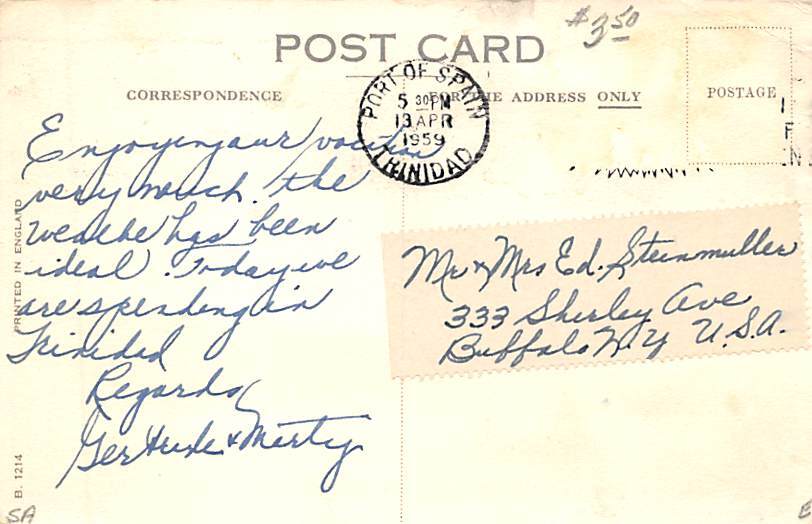 $3.50
POST CARD
CORRESPONDENCE
FOR THE ADDRESS ONLY
POSTAGE
PORT OF SPAIN
5 30 PM
13 APR
1959
TRINIDAD
Enjoying our vacation
very much. the
weathe has been
ideal. Today we
are spending in
Trinidad
Regards
Gertrude & Marty
Mr & Mrs Ed. Steinmuller
333 Shirley Ave
Buffalo N.Y U.S.A.
PRINTED IN ENGLAND
B. 1214
SA